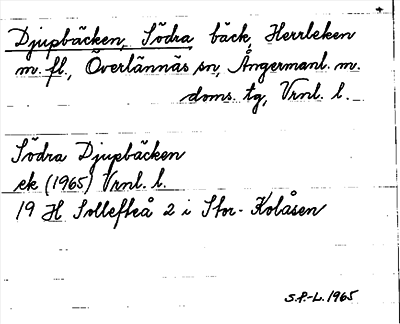 Djupbäcken, Södra, bäck, Herrleken
m. fl., Överlännäs sn, Ångermanl. m.
doms. tg, Vrnl. l.
Södra Djupbäcken
ek (1965) Vrnl. l.
19 H Sollefteå 2 i Stor-Kolåsen
S.P.-L. 1965